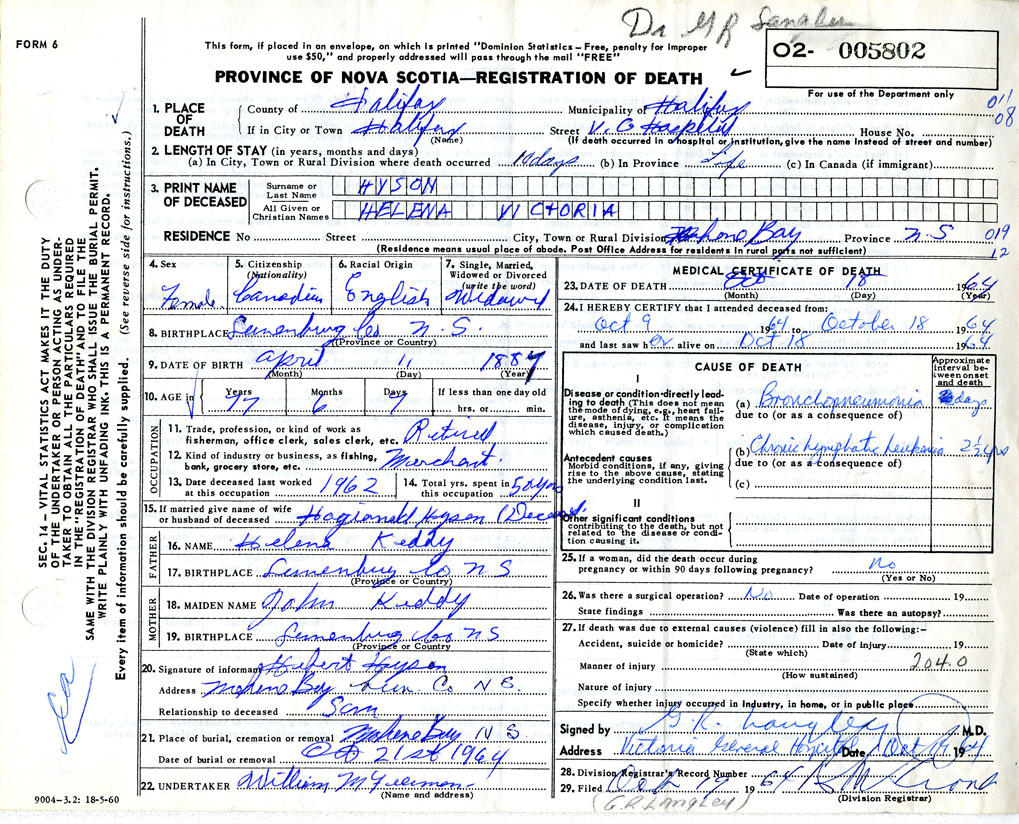 Dr G R Langley
FORM 6
This form, if placed in an envelope, on which is printed "Dominion Statistics – Free, penalty for improper
use $50," and properly addressed will pass through the mail "FREE"
O2- 005802
For use of the Department only
PROVINCE OF NOVA SCOTIA—REGISTRATION OF DEATH
011
08
1. PLACE OF DEATH
County of Halifax Municipality of Halifax
If in City or Town Halifax Street V. G Hospital House No.
(Name) (If death occurred in a hospital or institution, give name instead of street and number)
2. LENGTH OF STAY (in years, months and days)
(a) In City, Town or Rural Division where death occurred 10 days (b) In Province Life (c) In Canada (if immigrant)
3. PRINT NAME OF DECEASED
Surname or Last Name HYSON
All Given or Christian Names HELENA VICTORIA
RESIDENCE No Street City, Town or Rural Division Mahone Bay Province N.S 019
12
(Residence means usual place of abode. Post Office Address for residents in rural parts not sufficient)
4. Sex Female
5. Citizenship (Nationality) Canadian
6. Racial Origin English
7. Single, Married, Widowed or Divorced (write the word) Widowed
8. BIRTHPLACE Lunenburg Co N.S.
(Province or Country)
9. DATE OF BIRTH April 11 1887
(Month) (Day) (Year)
10. AGE in Years 77 Months 6 Days 7 If less than one day old
hrs. or min.
OCCUPATION
11. Trade, profession, or kind of work as
fisherman, office clerk, sales clerk, etc. Retired
12. Kind of industry or business, as fishing,
bank, grocery store, etc. Merchant.
13. Date deceased last worked at this occupation 1962
14. Total yrs. spent in this occupation 50 yrs
15. If married give name of wife
or husband of deceased Hyson
FATHER
16. NAME Helena Keddy
17. BIRTHPLACE Lunenburg Co N S
(Province or Country)
MOTHER
18. MAIDEN NAME John Keddy
19. BIRTHPLACE Lunenburg Co N S
(Province or Country)
20. Signature of informant Hubert Hyson
Address Mahone Bay Lun. Co N S.
Relationship to deceased Son
21. Place of burial, cremation or removal Mahone Bay N S
Date of burial or removal Oct 21st 1964
22. UNDERTAKER William M
(Name and address)
9004–3.2: 18-5-60
MEDICAL CERTIFICATE OF DEATH
23. DATE OF DEATH Oct 18 1964
(Month) (Day) (Year)
24. I HEREBY CERTIFY that I attended deceased from:
Oct 9 1964 to October 18 1964
and last saw her alive on Oct 18 1964
CAUSE OF DEATH
Approximate interval between onset and death
I
Disease or condition directly leading to death (This does not mean the mode of dying, e.g., heart failure, asthenia, etc. It means the disease, injury, or complication which caused death.)
(a) Bronchopneumonia days
due to (or as a consequence of)
Antecedent causes
Morbid conditions, if any, giving rise to the above cause, stating the underlying condition last.
(b) Chronic Lymphatic Leukemia 2½ yrs
due to (or as a consequence of)
(c)
II
Other significant conditions
contributing to the death, but not related to the disease or condition causing it.
25. If a woman, did the death occur during
pregnancy or within 90 days following pregnancy? No
(Yes or No)
26. Was there a surgical operation? No Date of operation 19
State findings Was there an autopsy?
27. If death was due to external causes (violence) fill in also the following:–
Accident, suicide or homicide? Date of injury 19
(State which)
Manner of injury 204.0
(How sustained)
Nature of injury
Specify whether injury occurred in industry, in home, or in public place
Signed by G. R. Langley M.D.
Address Victoria General Hospital Date Oct 19 1964
28. Division Registrar's Record Number
29. Filed Oct 19 1964
(G.R. LANGLEY) (Division Registrar)
SEC. 14 – VITAL STATISTICS ACT MAKES IT THE DUTY
OF THE UNDERTAKER OR PERSON ACTING AS UNDER-
TAKER TO OBTAIN ALL THE PARTICULARS REQUIRED
IN THE "REGISTRATION OF DEATH" AND TO FILE THE
SAME WITH THE DIVISION REGISTRAR WHO SHALL ISSUE THE BURIAL PERMIT.
WRITE PLAINLY WITH UNFADING INK. THIS IS A PERMANENT RECORD.
Every item of information should be carefully supplied. (See reverse side for instructions.)